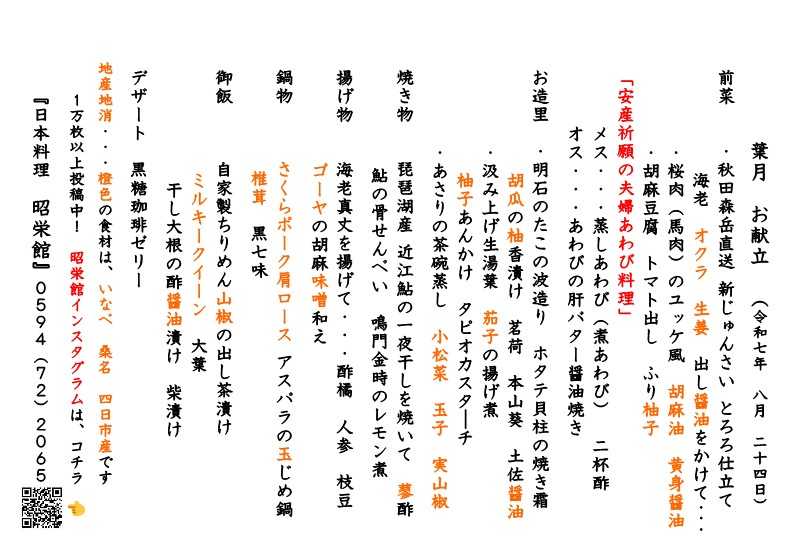 葉月　お献立　（令和七年　八月　二十四日）
前菜　・秋田森岳直送　新じゅんさい　とろろ仕立て
海老　オクラ　生姜　出し醤油をかけて・・・
・桜肉（馬肉）のユッケ風　胡麻油　黄身醤油
・胡麻豆腐　トマト出し　ふり柚子
「安産祈願の夫婦あわび料理」
メス・・・蒸しあわび（煮あわび）　二杯酢
オス・・・あわびの肝バター醤油焼き
お造里　・明石のたこの波造り　ホタテ貝柱の焼き霜
胡瓜の柚香漬け　茗荷　本山葵　土佐醤油
・汲み上げ生湯葉　茄子の揚げ煮
柚子あんかけ　タピオカスターチ
・あさりの茶碗蒸し　小松菜　玉子　実山椒
焼き物　琵琶湖産　近江鮎の一夜干しを焼いて　蓼酢
鮎の骨せんべい　鳴門金時のレモン煮
揚げ物　海老真丈を揚げて・・・酢橘　人参　枝豆
ゴーヤの胡麻味噌和え
鍋物　さくらポーク肩ロース　アスパラの玉じめ鍋
椎茸　黒七味
御飯　自家製ちりめん山椒の出し茶漬け
ミルキークイーン　大葉
干し大根の酢醤油漬け　柴漬け
デザート　黒糖珈琲ゼリー
地産地消・・・橙色の食材は、いなべ　桑名　四日市産です
１万枚以上投稿中！　昭栄館インスタグラムは、コチラ
『日本料理　昭栄館』０５９４（７２）２０６５